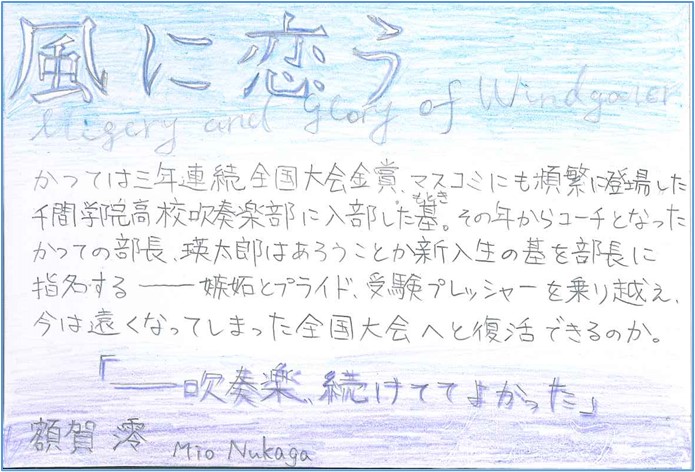 風に恋う
Migery and Glory of Windgazer
かつては三年連続全国大会金賞、マスコミにも頻繁に登場した
千間学院高校吹奏楽部に入部した基。その年からコーチとなった
もとき
かつての部長、瑛太郎はあろうことか新入生の基を部長に
指名する――嫉妬とプライド、受験プレッシャーを乗り越え、
今は遠くなってしまった全国大会へと復活できるのか。
「――吹奏楽、続けててよかった」
額賀 澪 Mio Nukaga